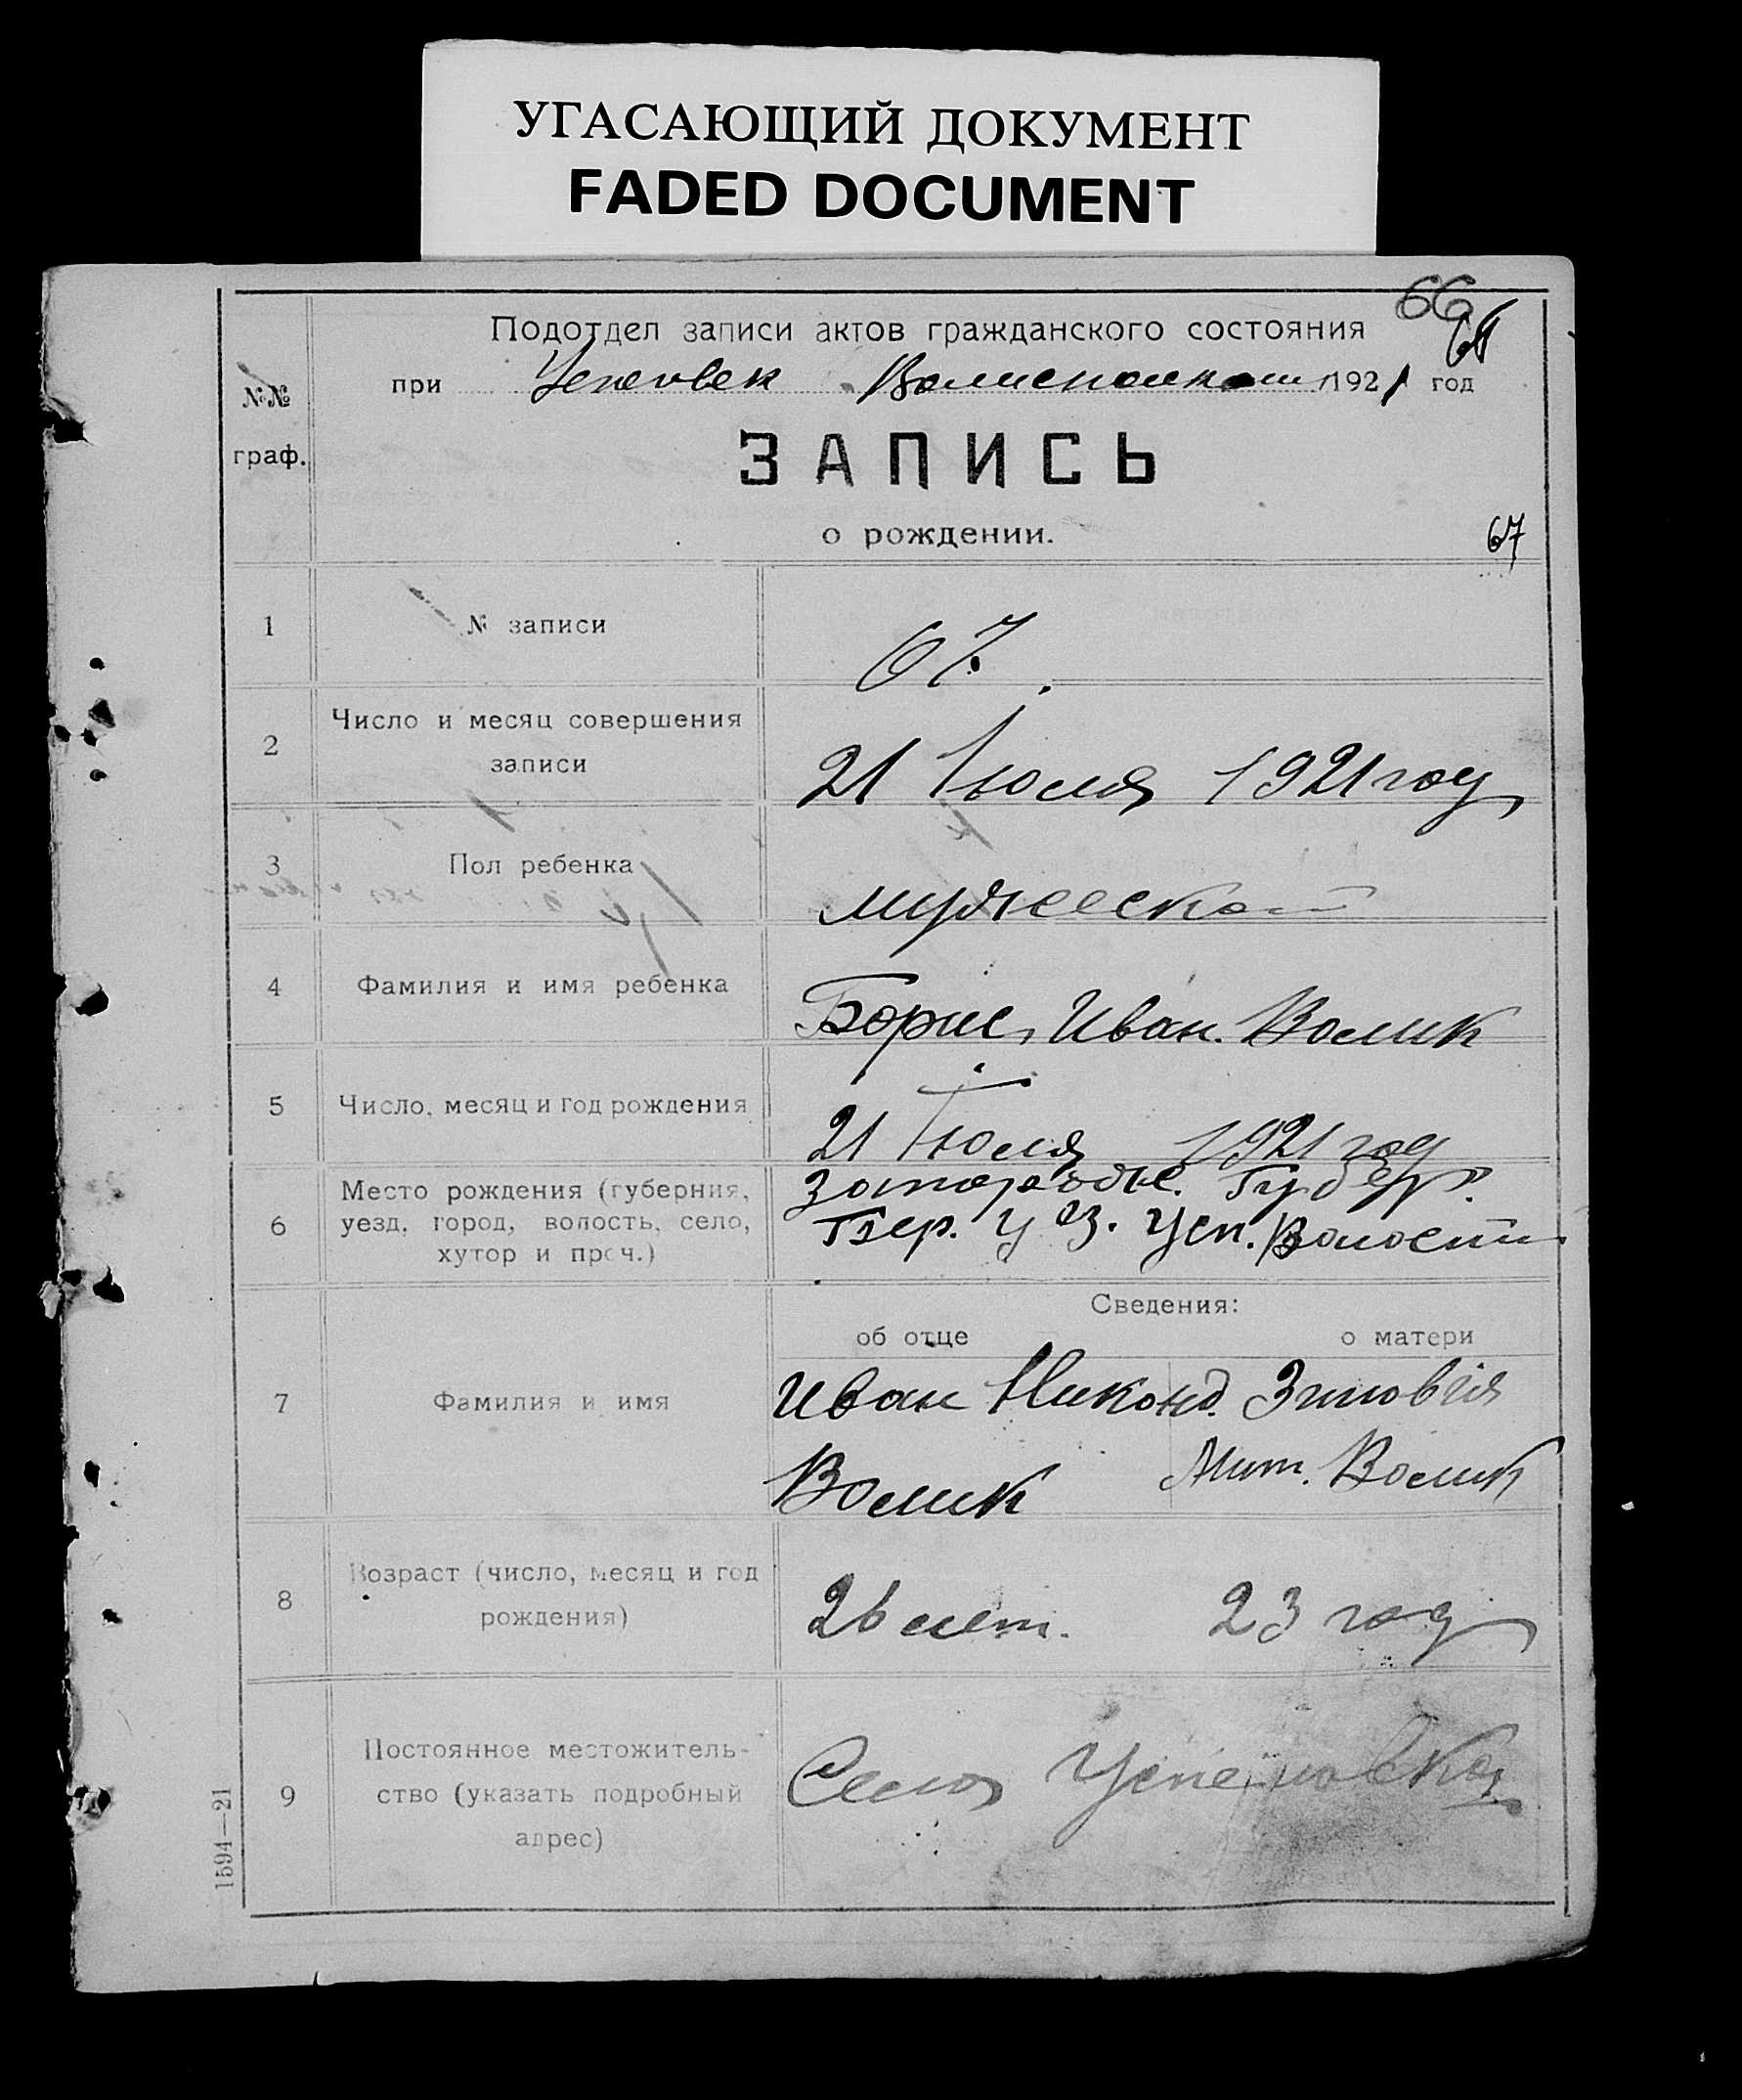 УГАСАЮЩИЙ ДОКУМЕНТ
FADED DOCUMENT
66
Подотдел записи актов гражданского состояния
при Успеовск Волисполком 1921 год
№№
граф.
ЗАПИСЬ
о рождении.
67
1 № записи 67.
2 Число и месяц совершения
записи
21 Июля 1921 году
3 Пол ребенка мужеской
4 Фамилия и имя ребенка Борис Иван. Волик
5 Число, месяц и год рождения 21 Июля 1921 год
6 Место рождения (губерния,
уезд, город, волость, село,
хутор и проч.)
Запорожс. Губер.
Бер. уез. Усп. Волости
Сведения:
об отце о матери
7 Фамилия и имя
Иван Никонд. Зиновія
Волик Мит. Волик
8 Возраст (число, месяц и год
рождения)
26 лет. 23 год
9 Постоянное местожитель-
ство (указать подробный
адрес)
Село Успеновка
1594—21